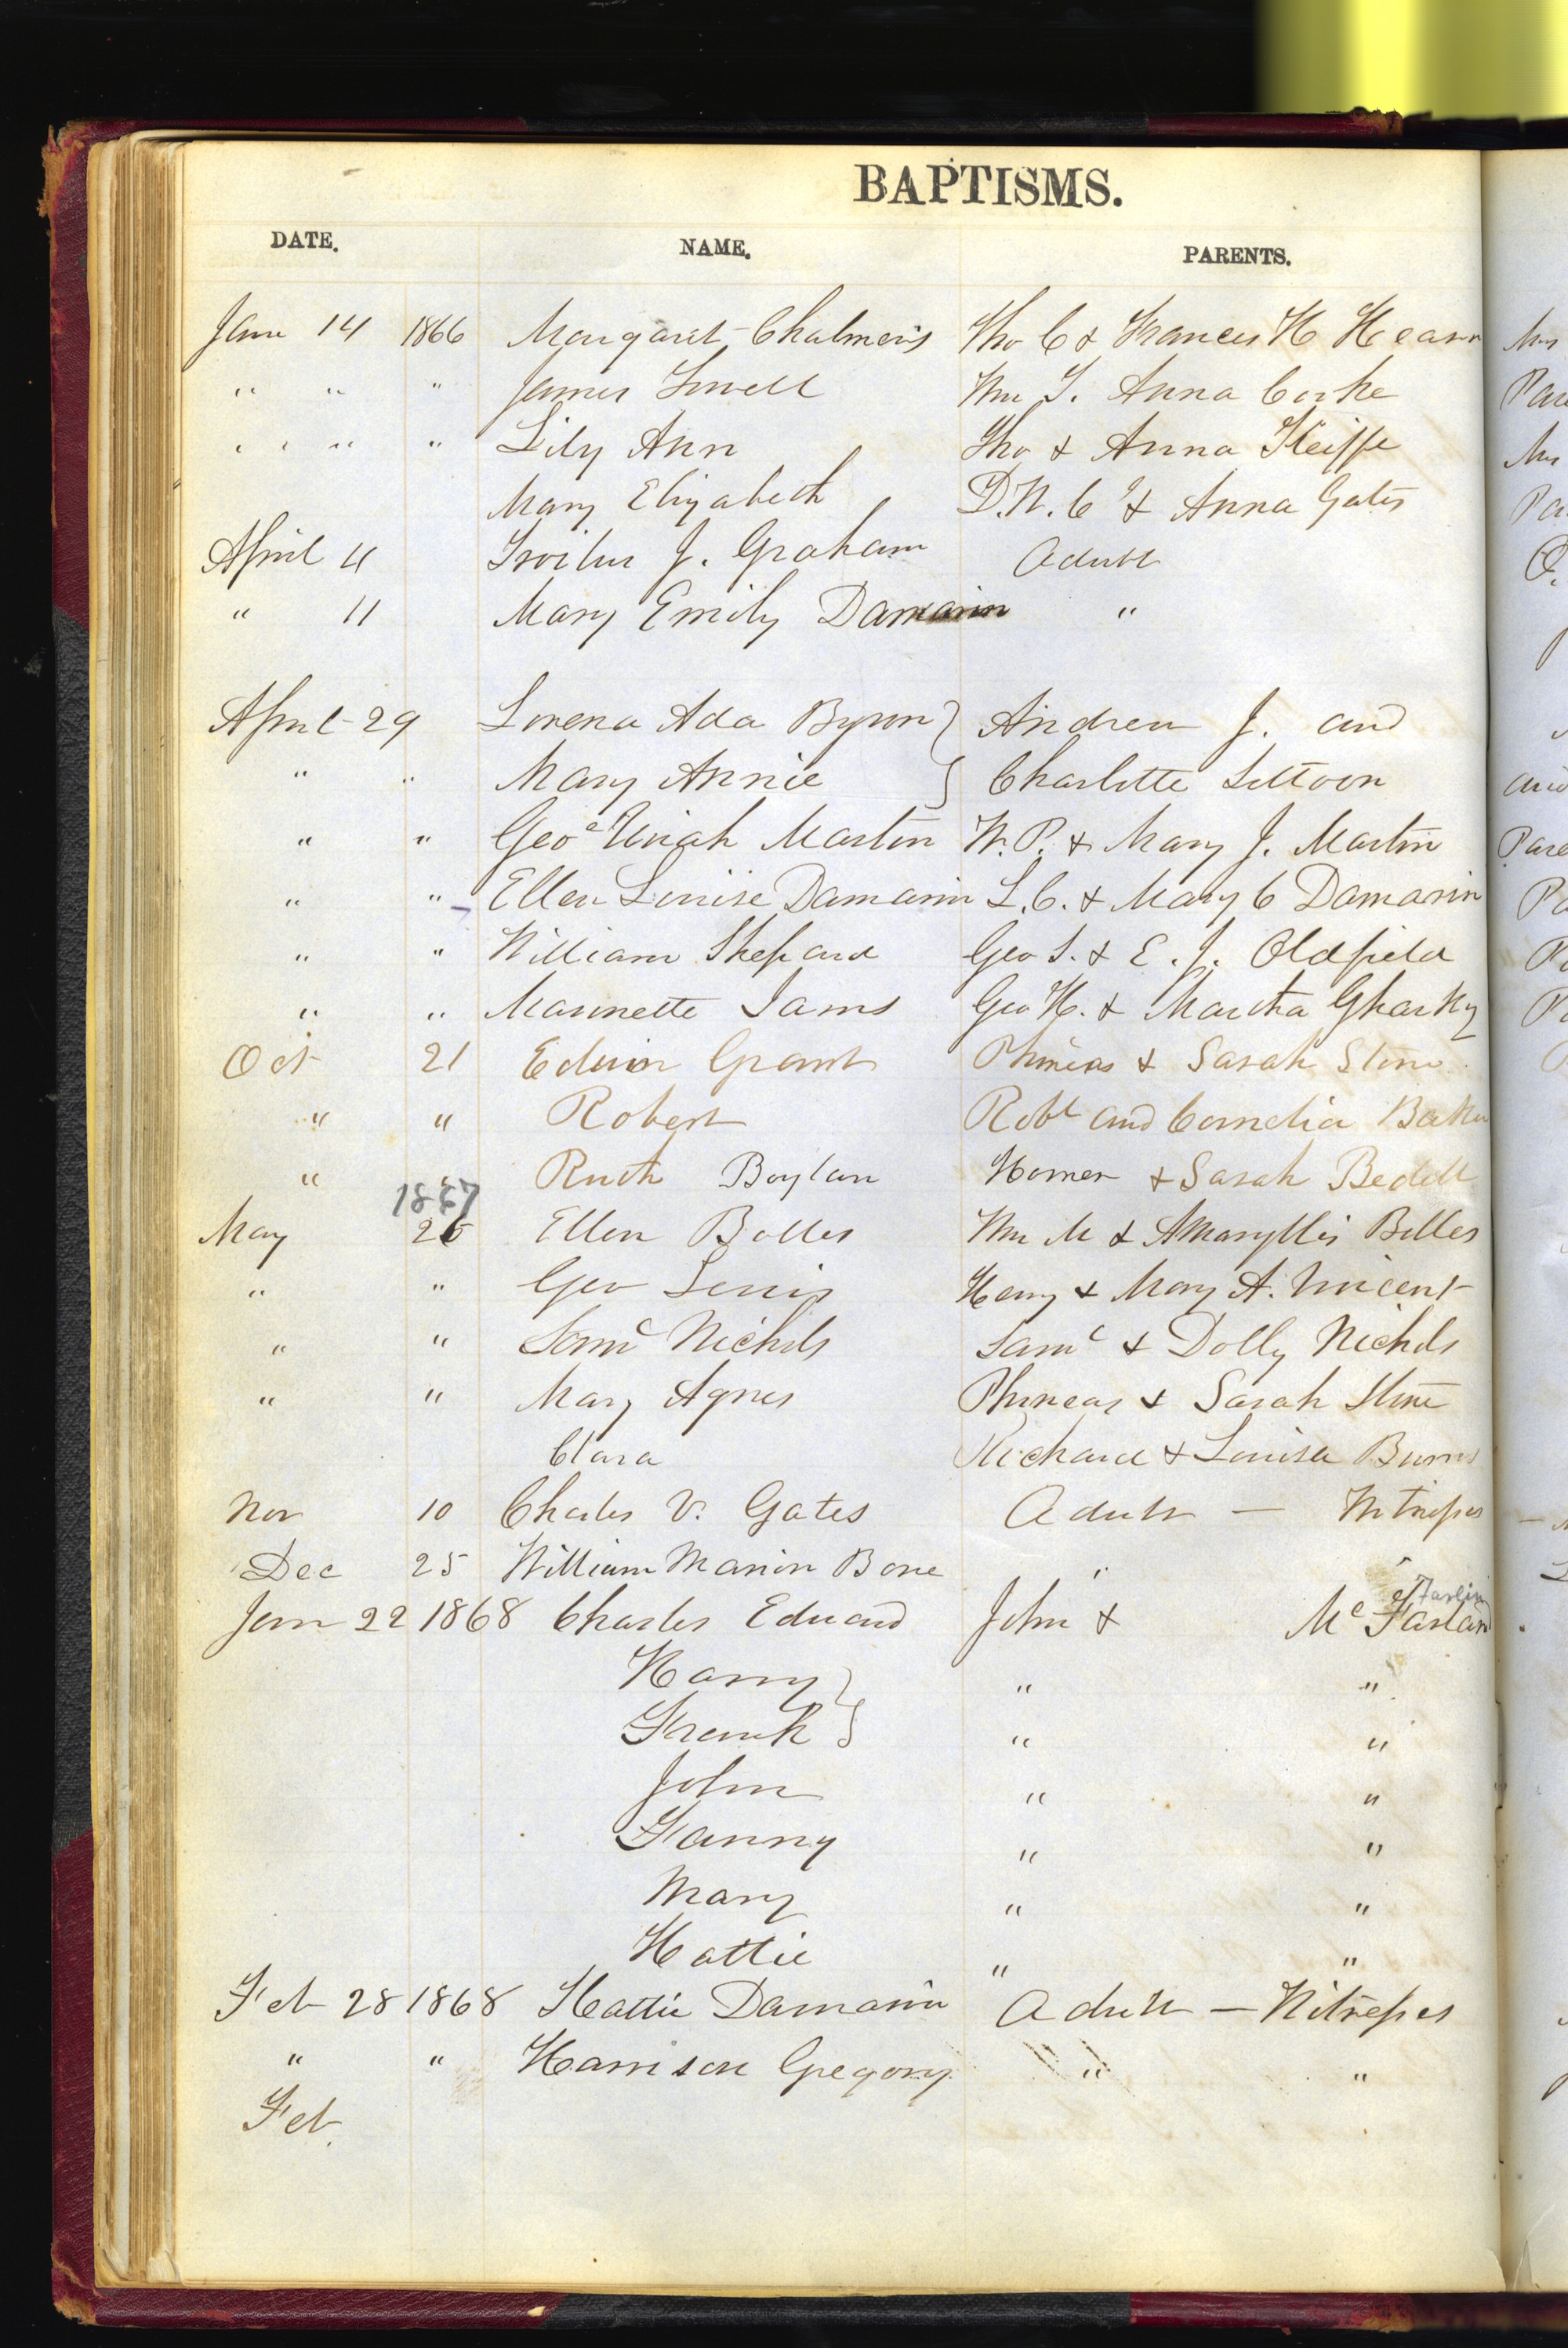 BAPTISMS.
DATE. NAME. PARENTS.
Jan 14 1866 Margaret Chalmers Tho C & Frances H Hearn
" " " James Lowell Wm T. Anna Cooke
" " " Lily Ann Tho & Anna Keiffe
Mary Elizabeth D.N.C & Anna Gates
April 11 Troilus J. Graham Adult
" 11 Mary Emily Damarin "
April 29 Lorena Ada Byron } Andrew J. and
" " Mary Annie } Charlotte Littoon
" " Geoe Uriah Martin W.P. & Mary J. Martin
" " Ellen Louise Damarin L.C. & Mary C Damarin
" " William Shepard Geo S. & E. J. Oldfield
" " Mannette Iams Geo H. & Martha Gharky
Oct 21 Edwin Grant Phineas & Sarah Stone
" " Robert Robt and Cornelia Baker
" " Ruth Boylan Homer & Sarah Bedell
1867
May 26 Ellen Bolles Wm M & Amaryllis Bolles
" " Geo Lewis Henry & Mary A. Vincent
" " Saml Nichols Saml & Dolly Nichols
" " Mary Agnes Phineas & Sarah Stone
Clara Richard & Louisa Burns
Nov 10 Charles V. Gates Adult — Witnesses
Dec 25 William Marion Bone " "
Farlin
Jan 22 1868 Charles Edward John & Mc Farland
Harry } " "
Frank } " "
John " "
Fanny " "
Mary " "
Hattie " "
Feb 28 1868 Hattie Damarin Adult — Witnesses
" " Harrison Gregory " "
Feb.